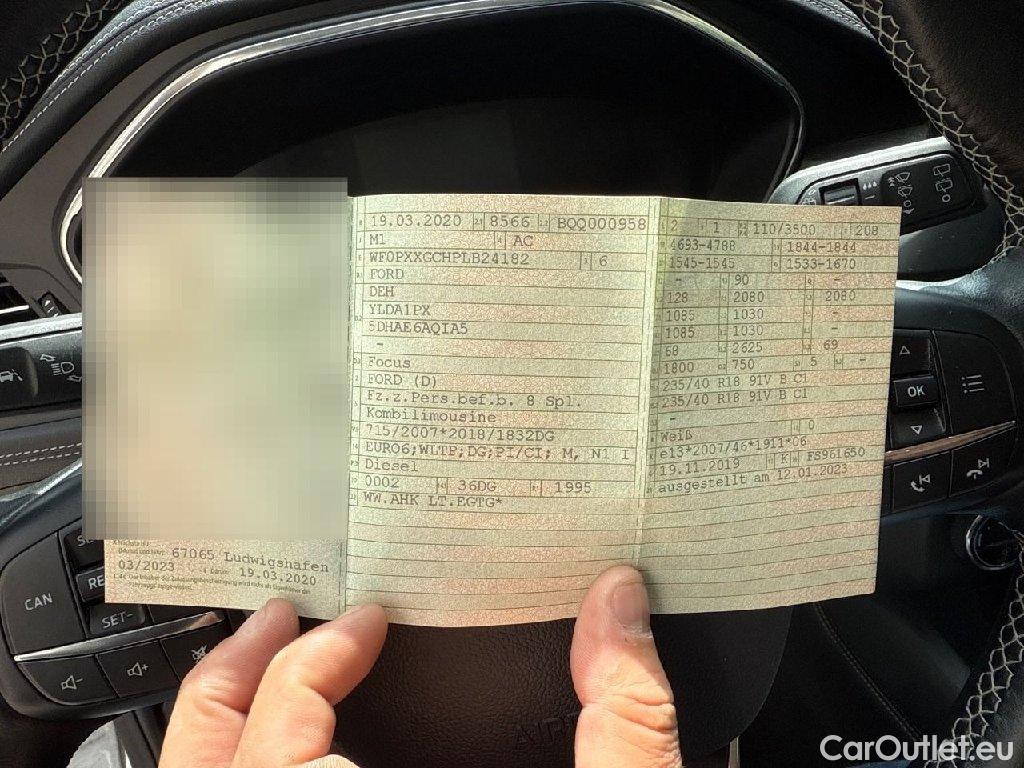 19.03.2020 8566 BQQ000958
M1 AC
WF0PXXGCHPLB24182 6
FORD
DEH
YLDA1PX
5DHAE6AQIA5
-
Focus
FORD (D)
Fz.z.Pers.bef.b. 8 Spl.
Kombilimousine
715/2007*2018/1832DG
EURO6;WLTP;DG;PI/CI; M, N1 I
Diesel
0002 36DG 1995
WW.AHK LT.EGTG*
2 1 110/3500 208
4693-4788 1844-1844
1545-1545 1533-1670
- 90 -
128 2080 2080
1085 1030 -
1085 1030 -
68 2625 69
1800 750 5 -
235/40 R18 91V B C1
235/40 R18 91V B C1
-
Weiß 0
e13*2007/46*1911*06
19.11.2019 K FS961650
ausgestellt am 12.01.2023
67065 Ludwigshafen
03/2023 19.03.2020
CAN
RE
SET-
OK
AIR
CarOutlet.eu